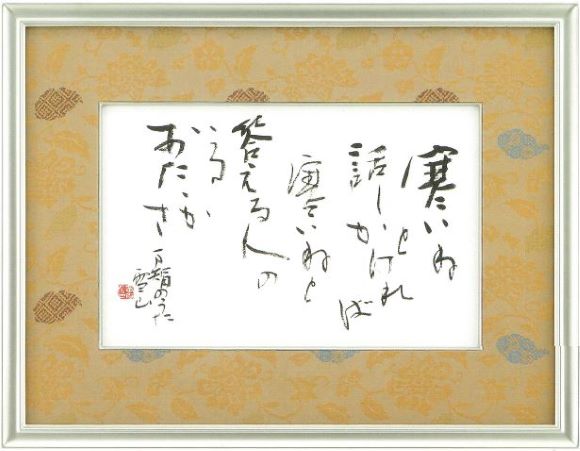 寒いね
と
話しかけれ
ば
寒いねと
答える人の
いる
あたたかさ
万智のうた
雪山